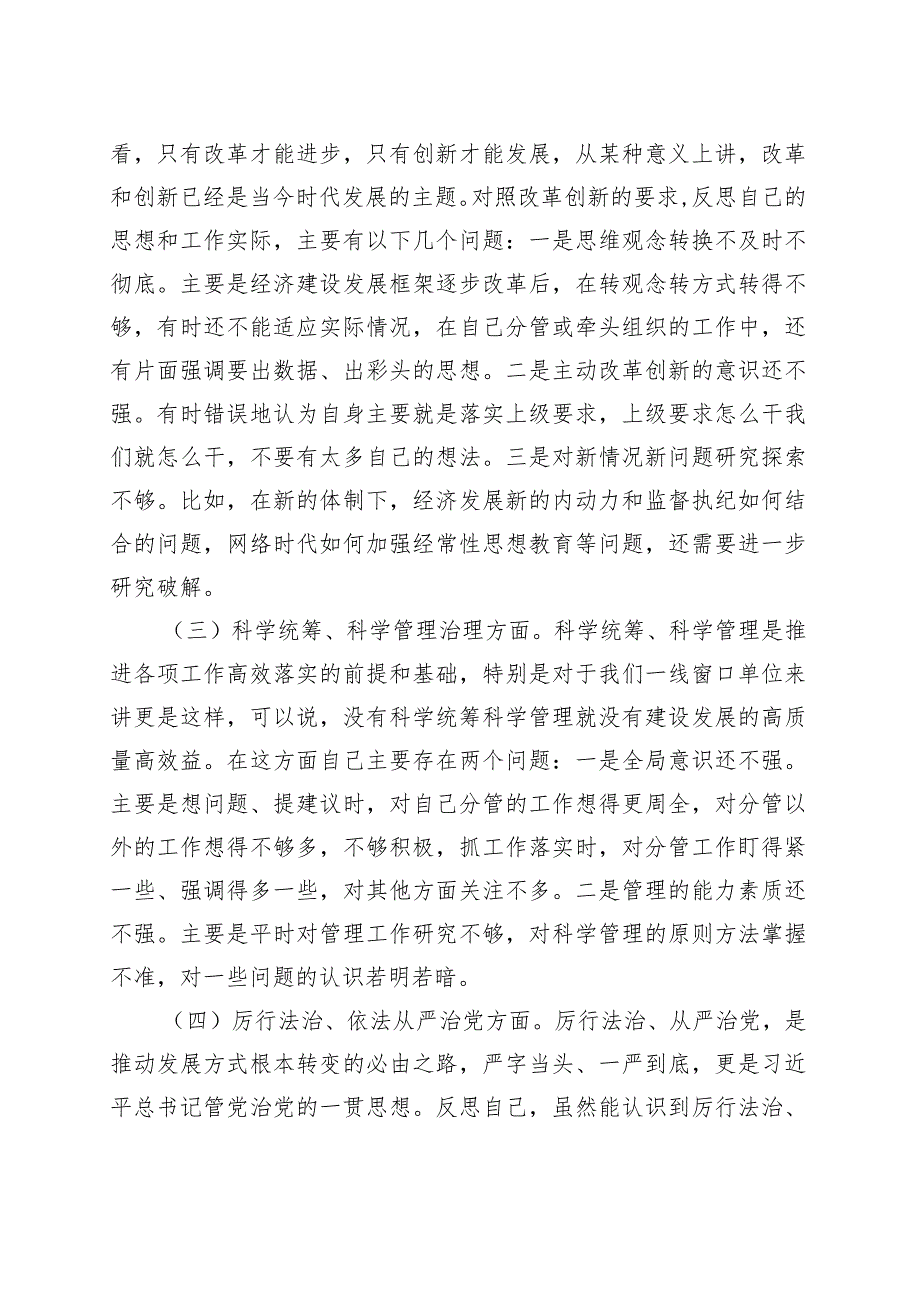 看，只有改革才能进步，只有创新才能发展，从某种意义上讲，改革
和创新已经是当今时代发展的主题。对照改革创新的要求,反思自己的
思想和工作实际，主要有以下几个问题：一是思维观念转换不及时不
彻底。主要是经济建设发展框架逐步改革后，在转观念转方式转得不
够，有时还不能适应实际情况，在自己分管或牵头组织的工作中，还
有片面强调要出数据、出彩头的思想。二是主动改革创新的意识还不
强。有时错误地认为自身主要就是落实上级要求，上级要求怎么干我
们就怎么干，不要有太多自己的想法。三是对新情况新问题研究探索
不够。比如，在新的体制下，经济发展新的内动力和监督执纪如何结
合的问题，网络时代如何加强经常性思想教育等问题，还需要进一步
研究破解。
（三）科学统筹、科学管理治理方面。科学统筹、科学管理是推
进各项工作高效落实的前提和基础，特别是对于我们一线窗口单位来
讲更是这样，可以说，没有科学统筹科学管理就没有建设发展的高质
量高效益。在这方面自己主要存在两个问题：一是全局意识还不强。
主要是想问题、提建议时，对自己分管的工作想得更周全，对分管以
外的工作想得不够多，不够积极，抓工作落实时，对分管工作盯得紧
一些、强调得多一些，对其他方面关注不多。二是管理的能力素质还
不强。主要是平时对管理工作研究不够，对科学管理的原则方法掌握
不准，对一些问题的认识若明若暗。
（四）厉行法治、依法从严治党方面。厉行法治、从严治党，是
推动发展方式根本转变的必由之路，严字当头、一严到底，更是习近
平总书记管党治党的一贯思想。反思自己，虽然能认识到厉行法治、